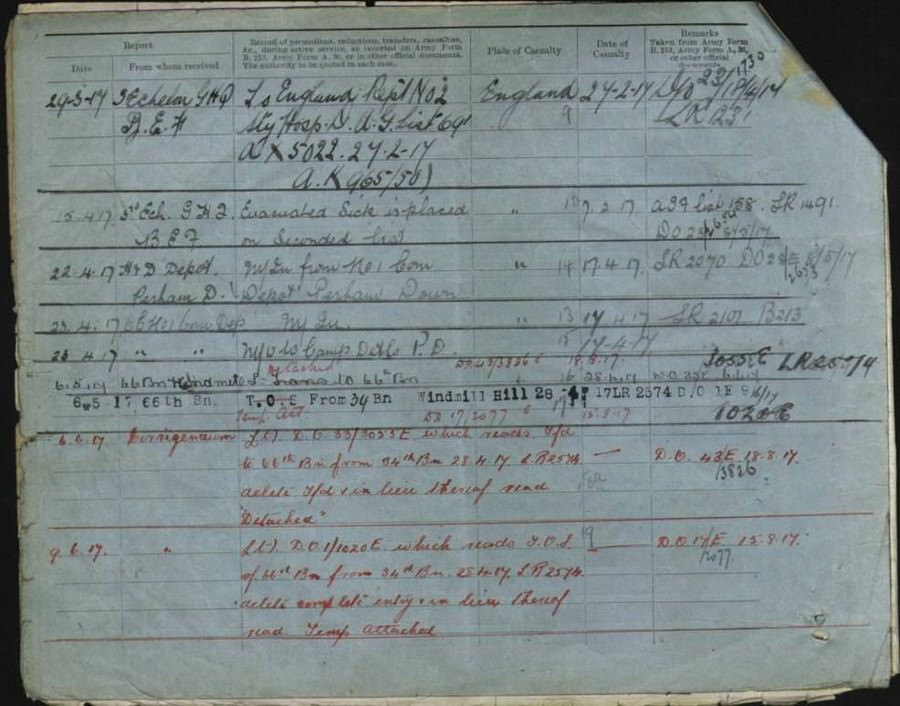 Report
Record of promotions, reductions, transfers, casualties, &c., during active service, as reported on Army Form B. 213, Army Form A. 36, or in other official documents. The authority to be quoted in each case.
Place of Casualty
Date of Casualty
Remarks
Taken from Army Form B. 213, Army Form A. 36, or other official documents.
Date
From whom received
29-3-17 3 Echelon G.H.Q To England Rept No 2 England 27-2-17 D/o
B.E.F Sty Hosp. D.A.G. list 691 LR 123
A X 5022. 27-2-17
A.K 965/50)
15.4.17 3rd Ech. G.H.Q Evacuated Sick is placed " 17.2.17 AGG list 158. LR 1491.
B.E.F. on Seconded list
22.4.17 H & D Depot. M/In from No 1 Com " 14 17.4.17. LR 2070
Perham D. Depot Perham Down
23.4.17 No 1 Com Dep M/In. " 13 17.4.17 LR 2107 B213
23 4 17 " " M/O to Camp Dtls P.D. 17-4-17
Detached 18.8.17. 3055 E
6.5.17 66 Bn Windmill Trans to 66th Bn 16 28.4.17
6.5 17. 66th Bn. T.O.S From 34 Bn Windmill Hill 28 .4. 17 LR 2574 D.O 1E
Temp Att DO 17/2077 E 15.8.17 1020 E
6.6.17 Corrigendum D.O. 33/3055E which reads T/d
to 66th Bn from 34th Bn 28.4.17. LR 2574 — D.O. 43E. 18.8.17.
delete T/d & in lieu thereof read 18a /3826
"Detached"
9.6.17. " D.O 1/1020 E which reads T.O.S. 19 — D.O 17/E 15.8.17.
of 66th Bn from 34th Bn. 28.4.17. LR 2574. 2077
delete complete entry & in lieu thereof
read Temp attached